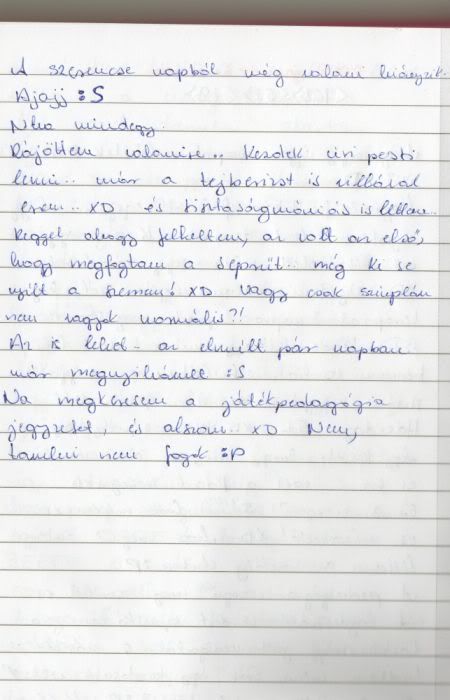 A szerencse napból még valami hiányzik.
Ajajj :S
Na mindegy.
Rájöttem valamire.. Kezdek úri pesti
lenni.. már a tejberizst is villával
eszem.. XD és tisztaságmániás is lettem..
Reggel ahogy felkeltem, az volt az első,
hogy megfogtam a seprűt.. még ki se
nyílt a szemem! XD vagy csak szimplán
nem vagyok normális?!
Az is lehet - az elmúlt pár napban
már :S
Na megkeresem a játékpedagógia
jegyzetet, és alszom.. XD Nem,
tanulni nem fogok :P